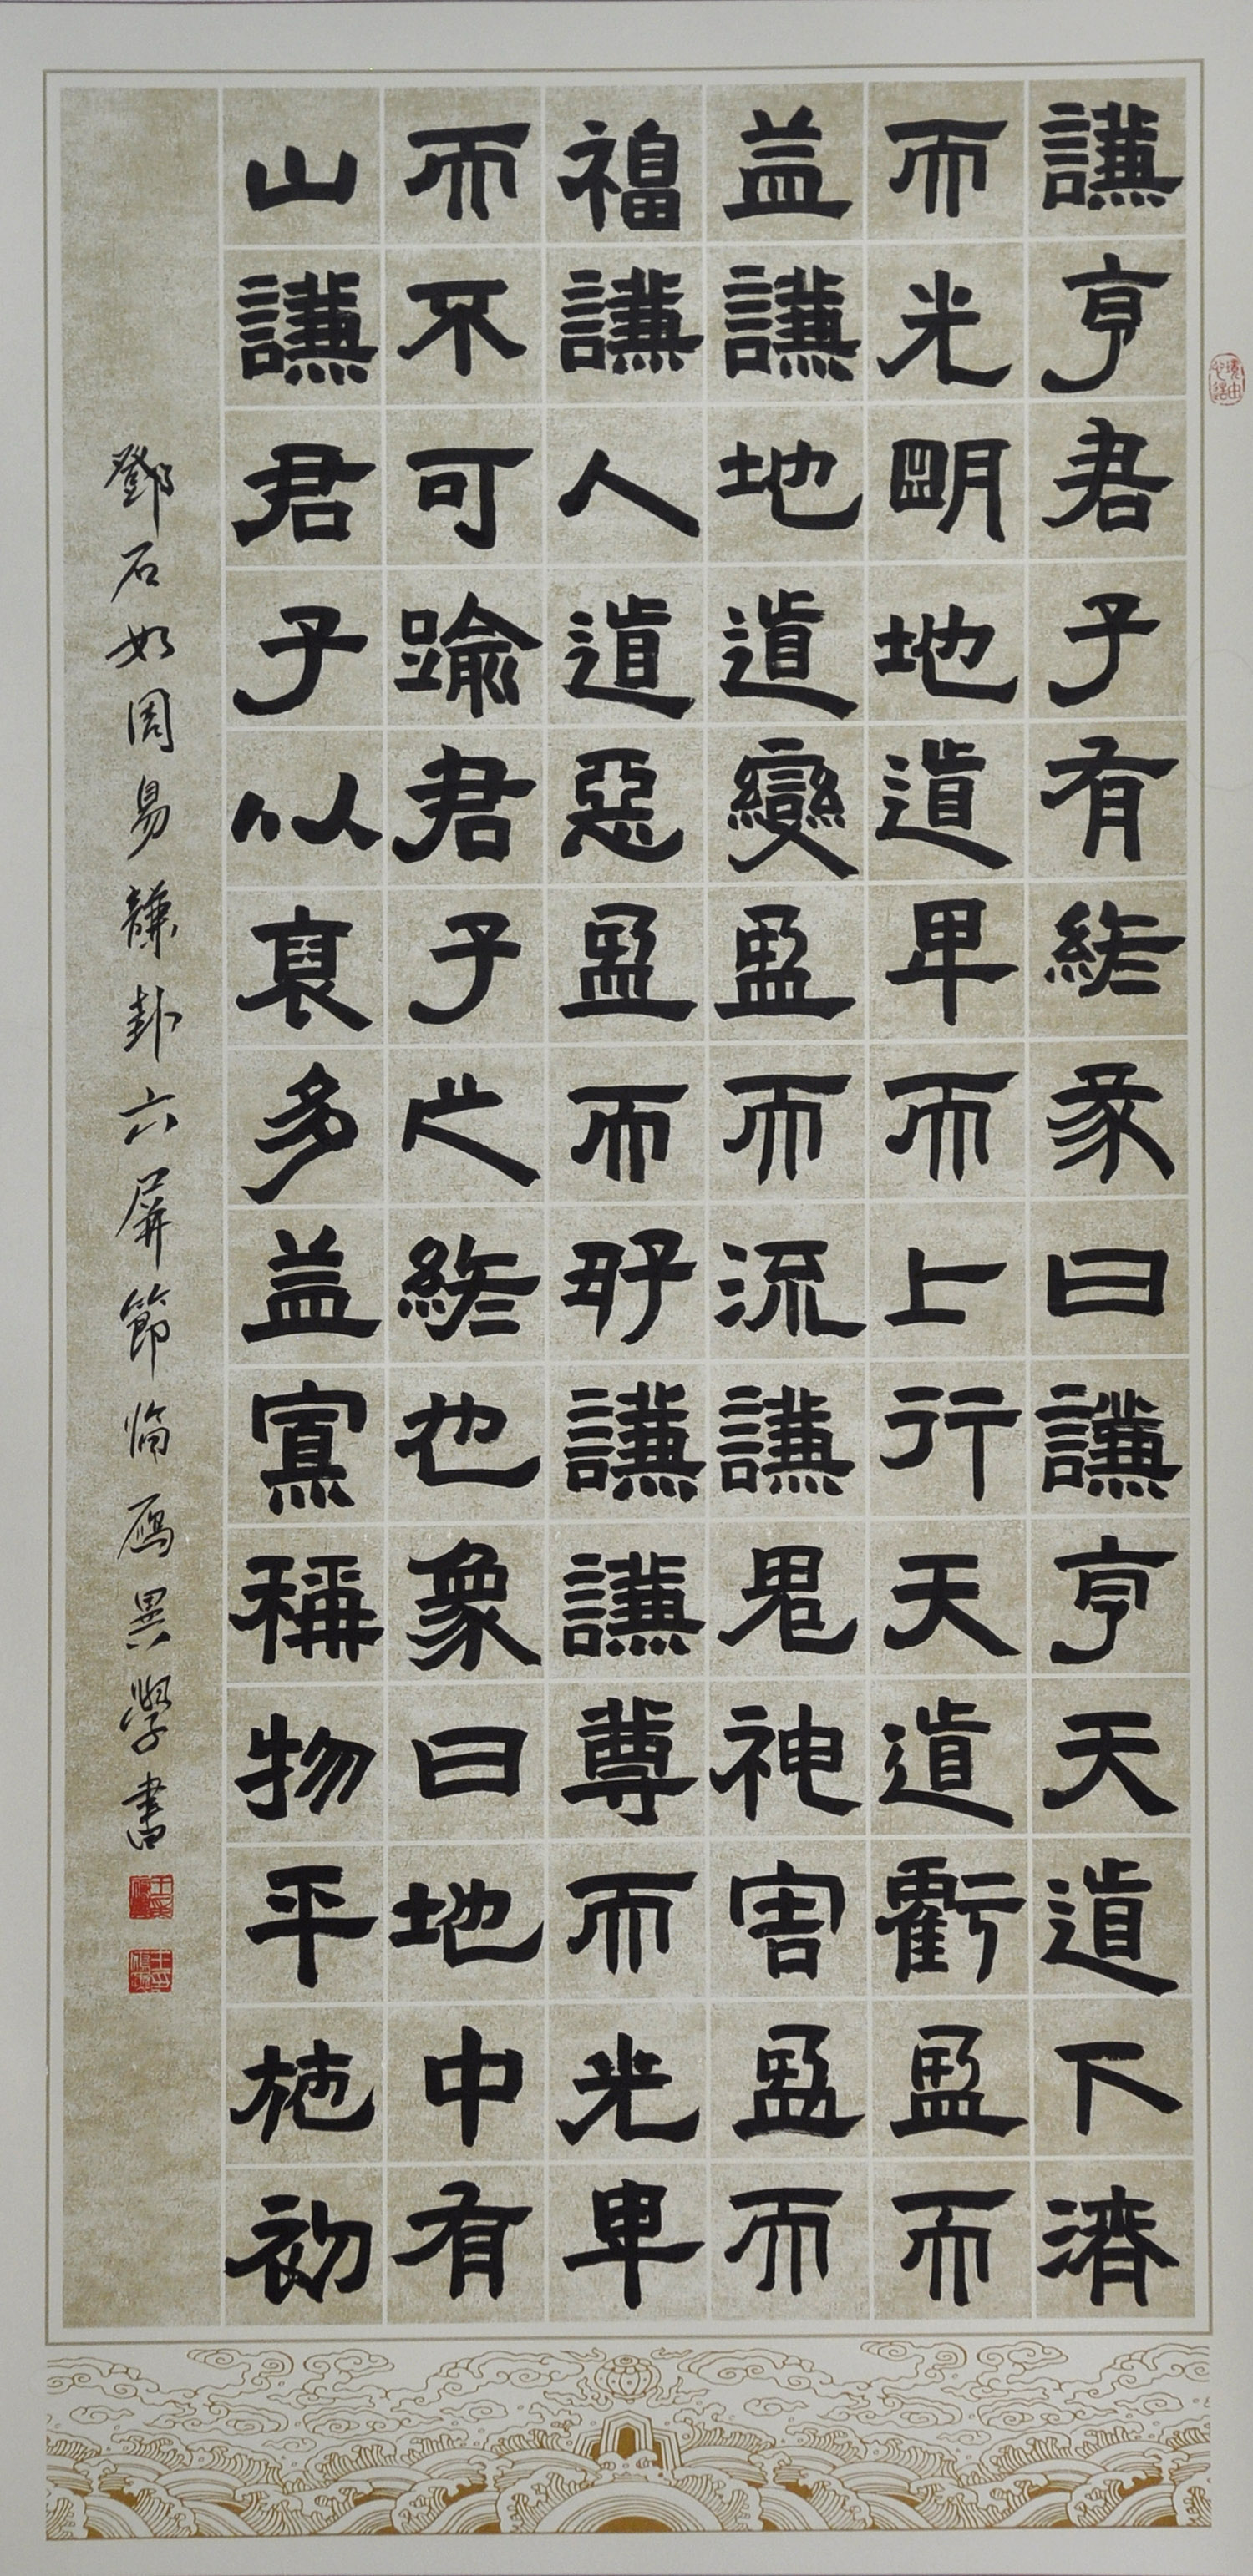 謙亨君子有終彖曰謙亨天道下濟
而光明地道卑而上行天道虧盈而
益謙地道變盈而流謙鬼神害盈而
福謙人道惡盈而好謙謙尊而光卑
而不可踰君子之終也象曰地中有
山謙君子以裒多益寡稱物平施初
鄧石如周易謙卦六屏節臨雁異學書